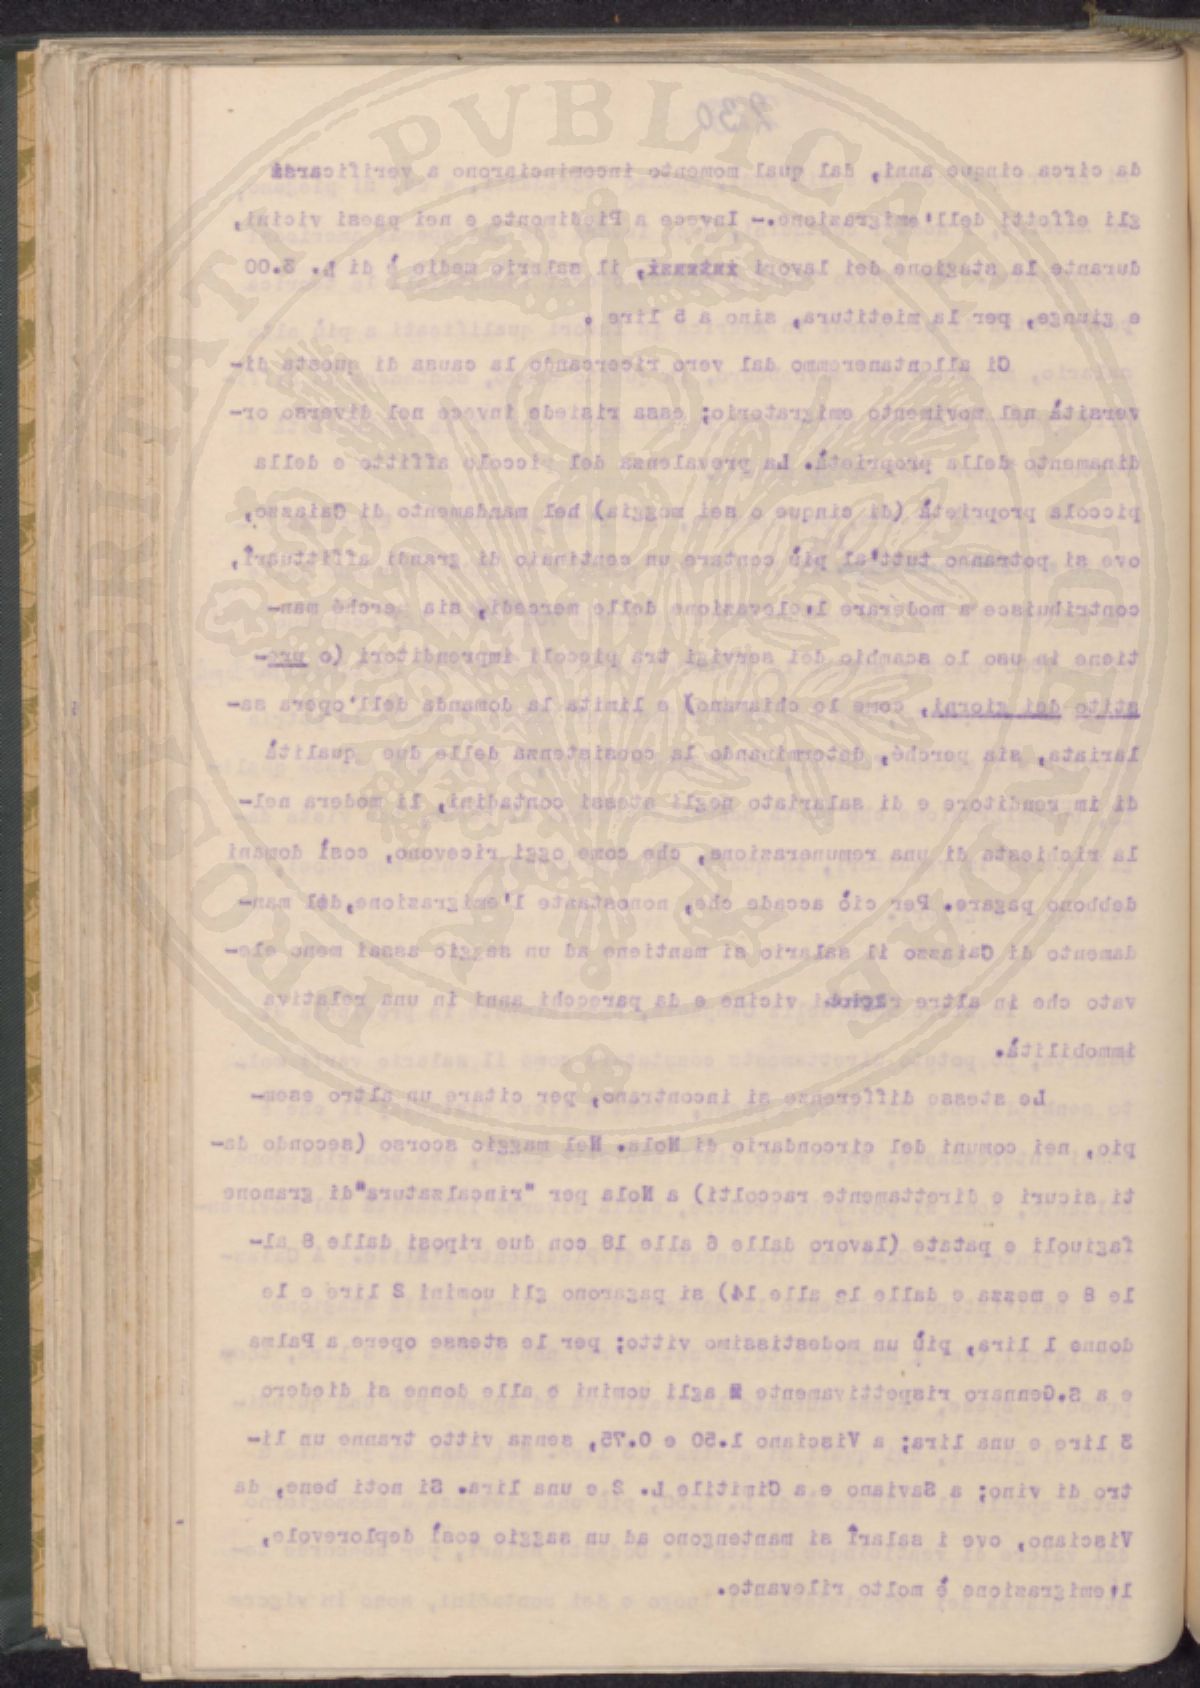 230
da circa cinque anni, dal qual momento incominciarono a verificarsi
gli effetti dell'emigrazione.- Invece a Piedimonte e nei paesi vicini,
durante la stagione dei lavori intensi, il salario medio è di L. 3.00
e giunge, per la mietitura, sino a 5 lire .
Ci allontaneremmo dal vero ricercando la causa di questa di-
versità nel movimento emigratorio; essa risiede invece nel diverso or-
dinamento della proprietà. La prevalenza del piccolo affitto e della
piccola proprietà (di cinque o sei moggia) hel mandamento di Caiazzo,
ove si potranno tutt'al più contare un centinaio di grandi affittuarî,
contribuisce a moderare l'elevazione delle mercedi, sia perché man-
tiene in uso lo scambio dei servigi tra piccoli imprenditori (o pre-
stito dei giorni, come lo chiamano) e limita la domanda dell'opera sa-
lariata, sia perché, determinando la coesistenza delle due qualità
di imprenditore e di salariato negli stessi contadini, li modera nel-
la richiesta di una remunerazione, che come oggi ricevono, così domani
debbono pagare. Per ciò accade che, nonostante l'emigrazione, del man-
damento di Caiazzo il salario si mantiene ad un saggio assai meno ele-
vato che in altre regioni vicine e da parecchi anni in una relativa
immobilità.
Le stesse differenze si incontrano, per citare un altro esem-
pio, nei comuni del circondario di Nola. Nel maggio scorso (secondo da-
ti sicuri e direttamente raccolti) a Nola per "rincalzatura" di granone
fagiuoli e patate (lavoro dalle 6 alle 18 con due riposi dalle 8 al-
le 8 e mezza e dalle le alle 14) si pagarono gli uomini 2 lire e le
donne 1 lira, più un modestissimo vitto; per le stesse opere a Palma
e a S.Gennaro rispettivamente agli uomini e alle donne si diedero
3 lire e una lira; a Visciano 1.50 e 0.75, senza vitto tranne un li-
tro di vino; a Saviano e a Cimitile L. 2 e una lira. Si noti bene, da
Visciano, ove i salarî si mantengono ad un saggio così deplorevole,
l'emigrazione è molto rilevante.